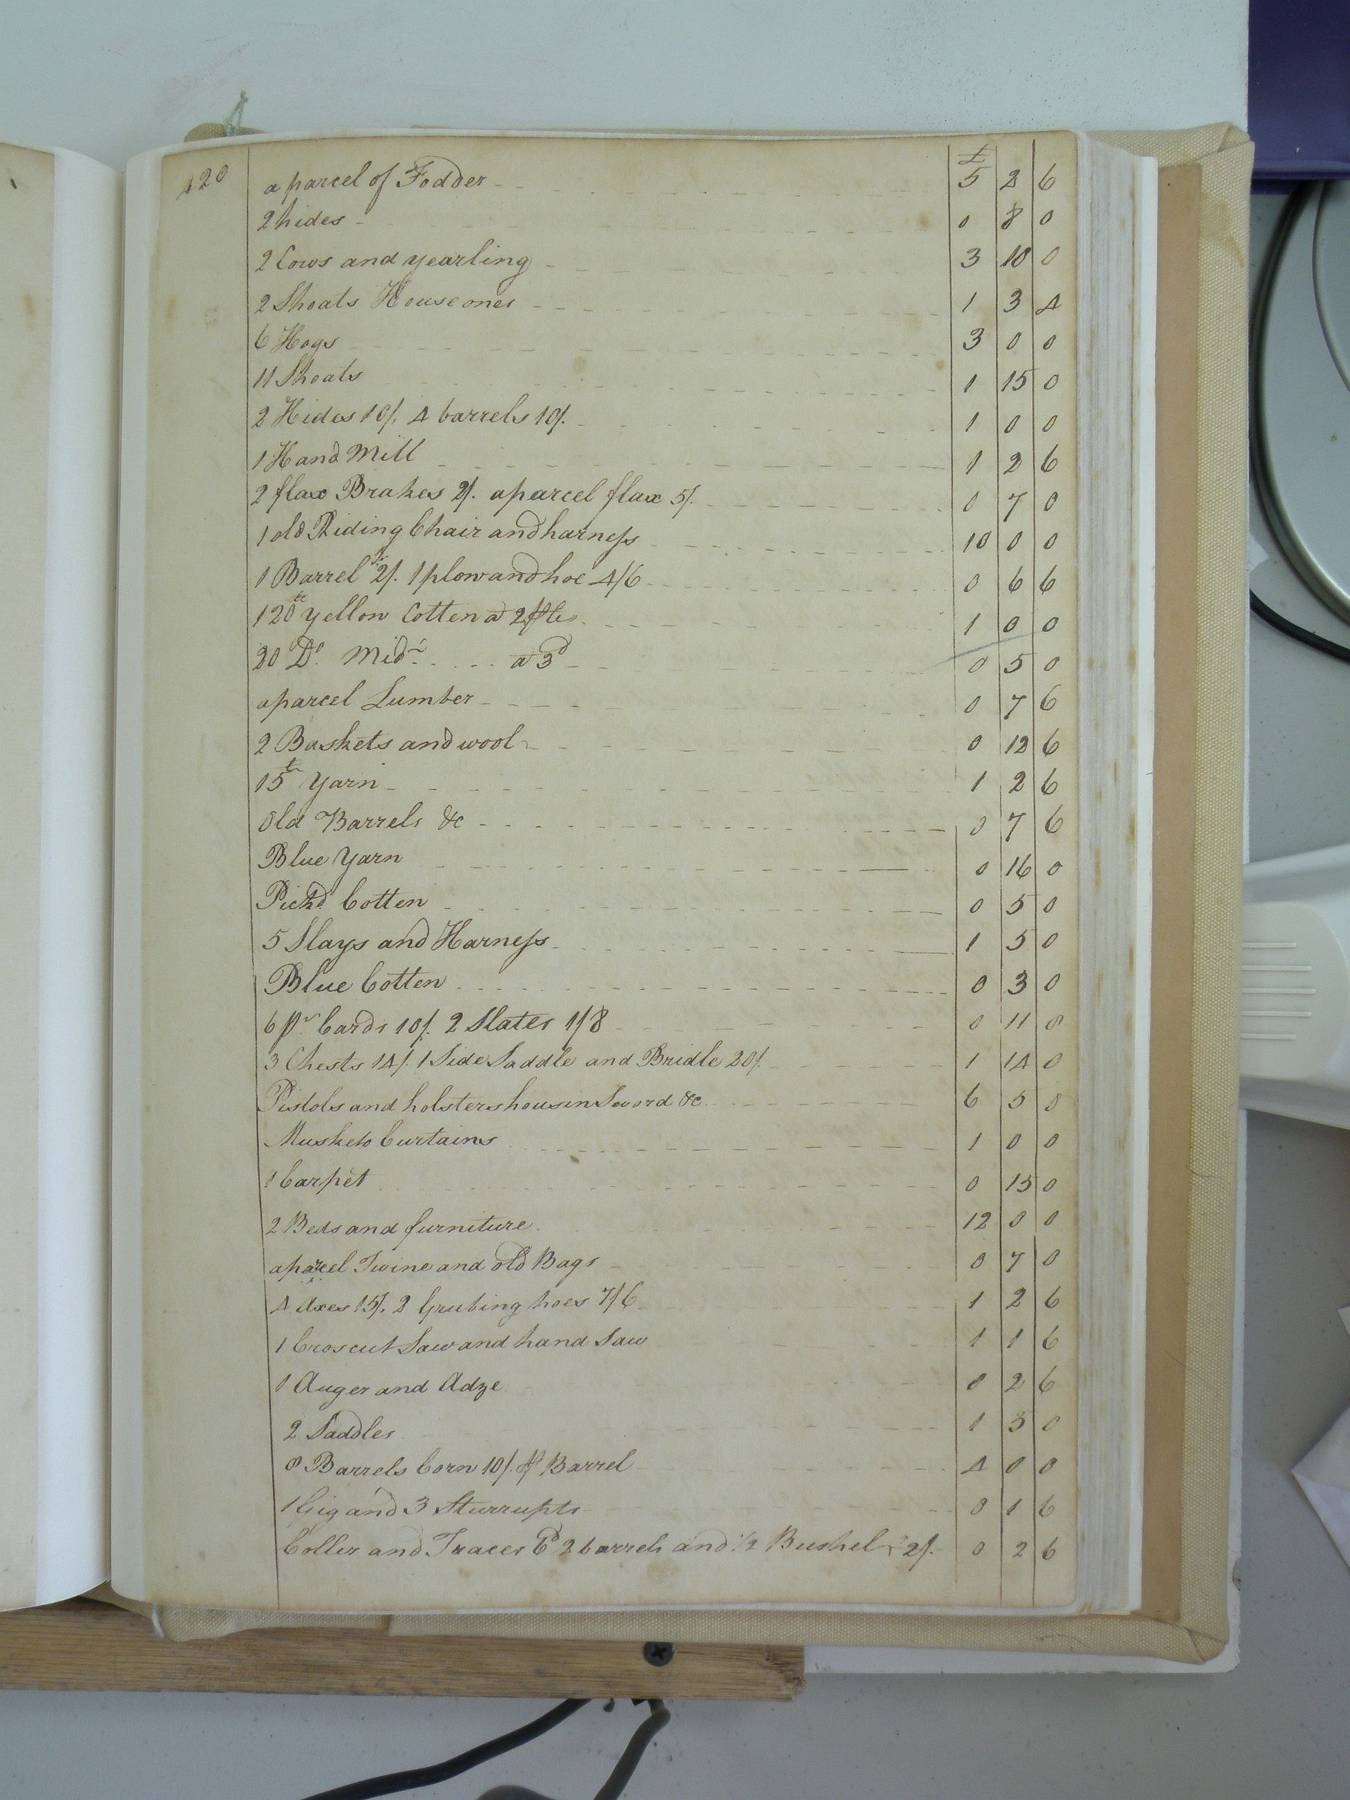 420
£
a parcel of Fodder 5 2 6
2 hides 0 8 0
2 Cows and yearling 3 10 0
2 Shoats House ones 1 3 4
6 Hogs 3 0 0
11 Shoats 1 15 0
2 Hides 10/. 4 barrels 10/. 1 0 0
1 Hand Mill 1 2 6
2 flax Brakes 2/. a parcel flax 5/. 0 7 0
1 old Riding Chair and harness 10 0 0
1 Barrel 2/. 1 plow and hoe 4/6 0 6 6
120 yellow Cotten a 2 1 0 0
20 Do. Mid. a 3d 0 5 0
a parcel Lumber 0 7 6
2 Baskets and wool 0 12 6
15 Yarn 1 2 6
Old Barrels &c 0 7 6
Blue Yarn 0 16 0
Pickd Cotten 0 5 0
5 Slays and Harness 1 5 0
Blue Cotten 0 3 0
6 pr Cards 10/. 2 Slates 1/8 0 11 8
3 Chests 14/. 1 Side Saddle and Bridle 20/. 1 14 0
Pistols and holsters housin Sword &c 6 5 0
Musketo Curtains 1 0 0
1 Carpet 0 15 0
2 Beds and furniture 12 0 0
a parcel Twine and old Bags 0 7 0
4 Axes 15/. 2 Grubing hoes 7/6 1 2 6
1 Croscut Saw and hand Saw 1 1 6
1 Auger and Adze 0 2 6
2 Saddles 1 5 0
8 Barrels Corn 10/. Barrel 4 0 0
1 Gig and 3 Sturrupts 0 1 6
Coller and Traces 6d 2 barrels and 1/2 Bushel 2/. 0 2 6